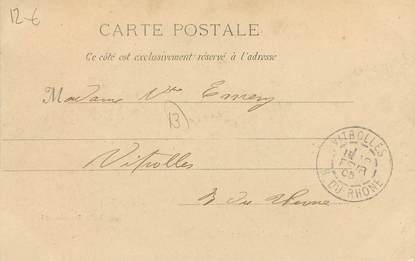 12-6
CARTE POSTALE
Ce côté est exclusivement réservé à l'adresse
Madame Vve Emery
13
Vitrolles
B du Rhone
VITROLLES
B. DU-RHONE